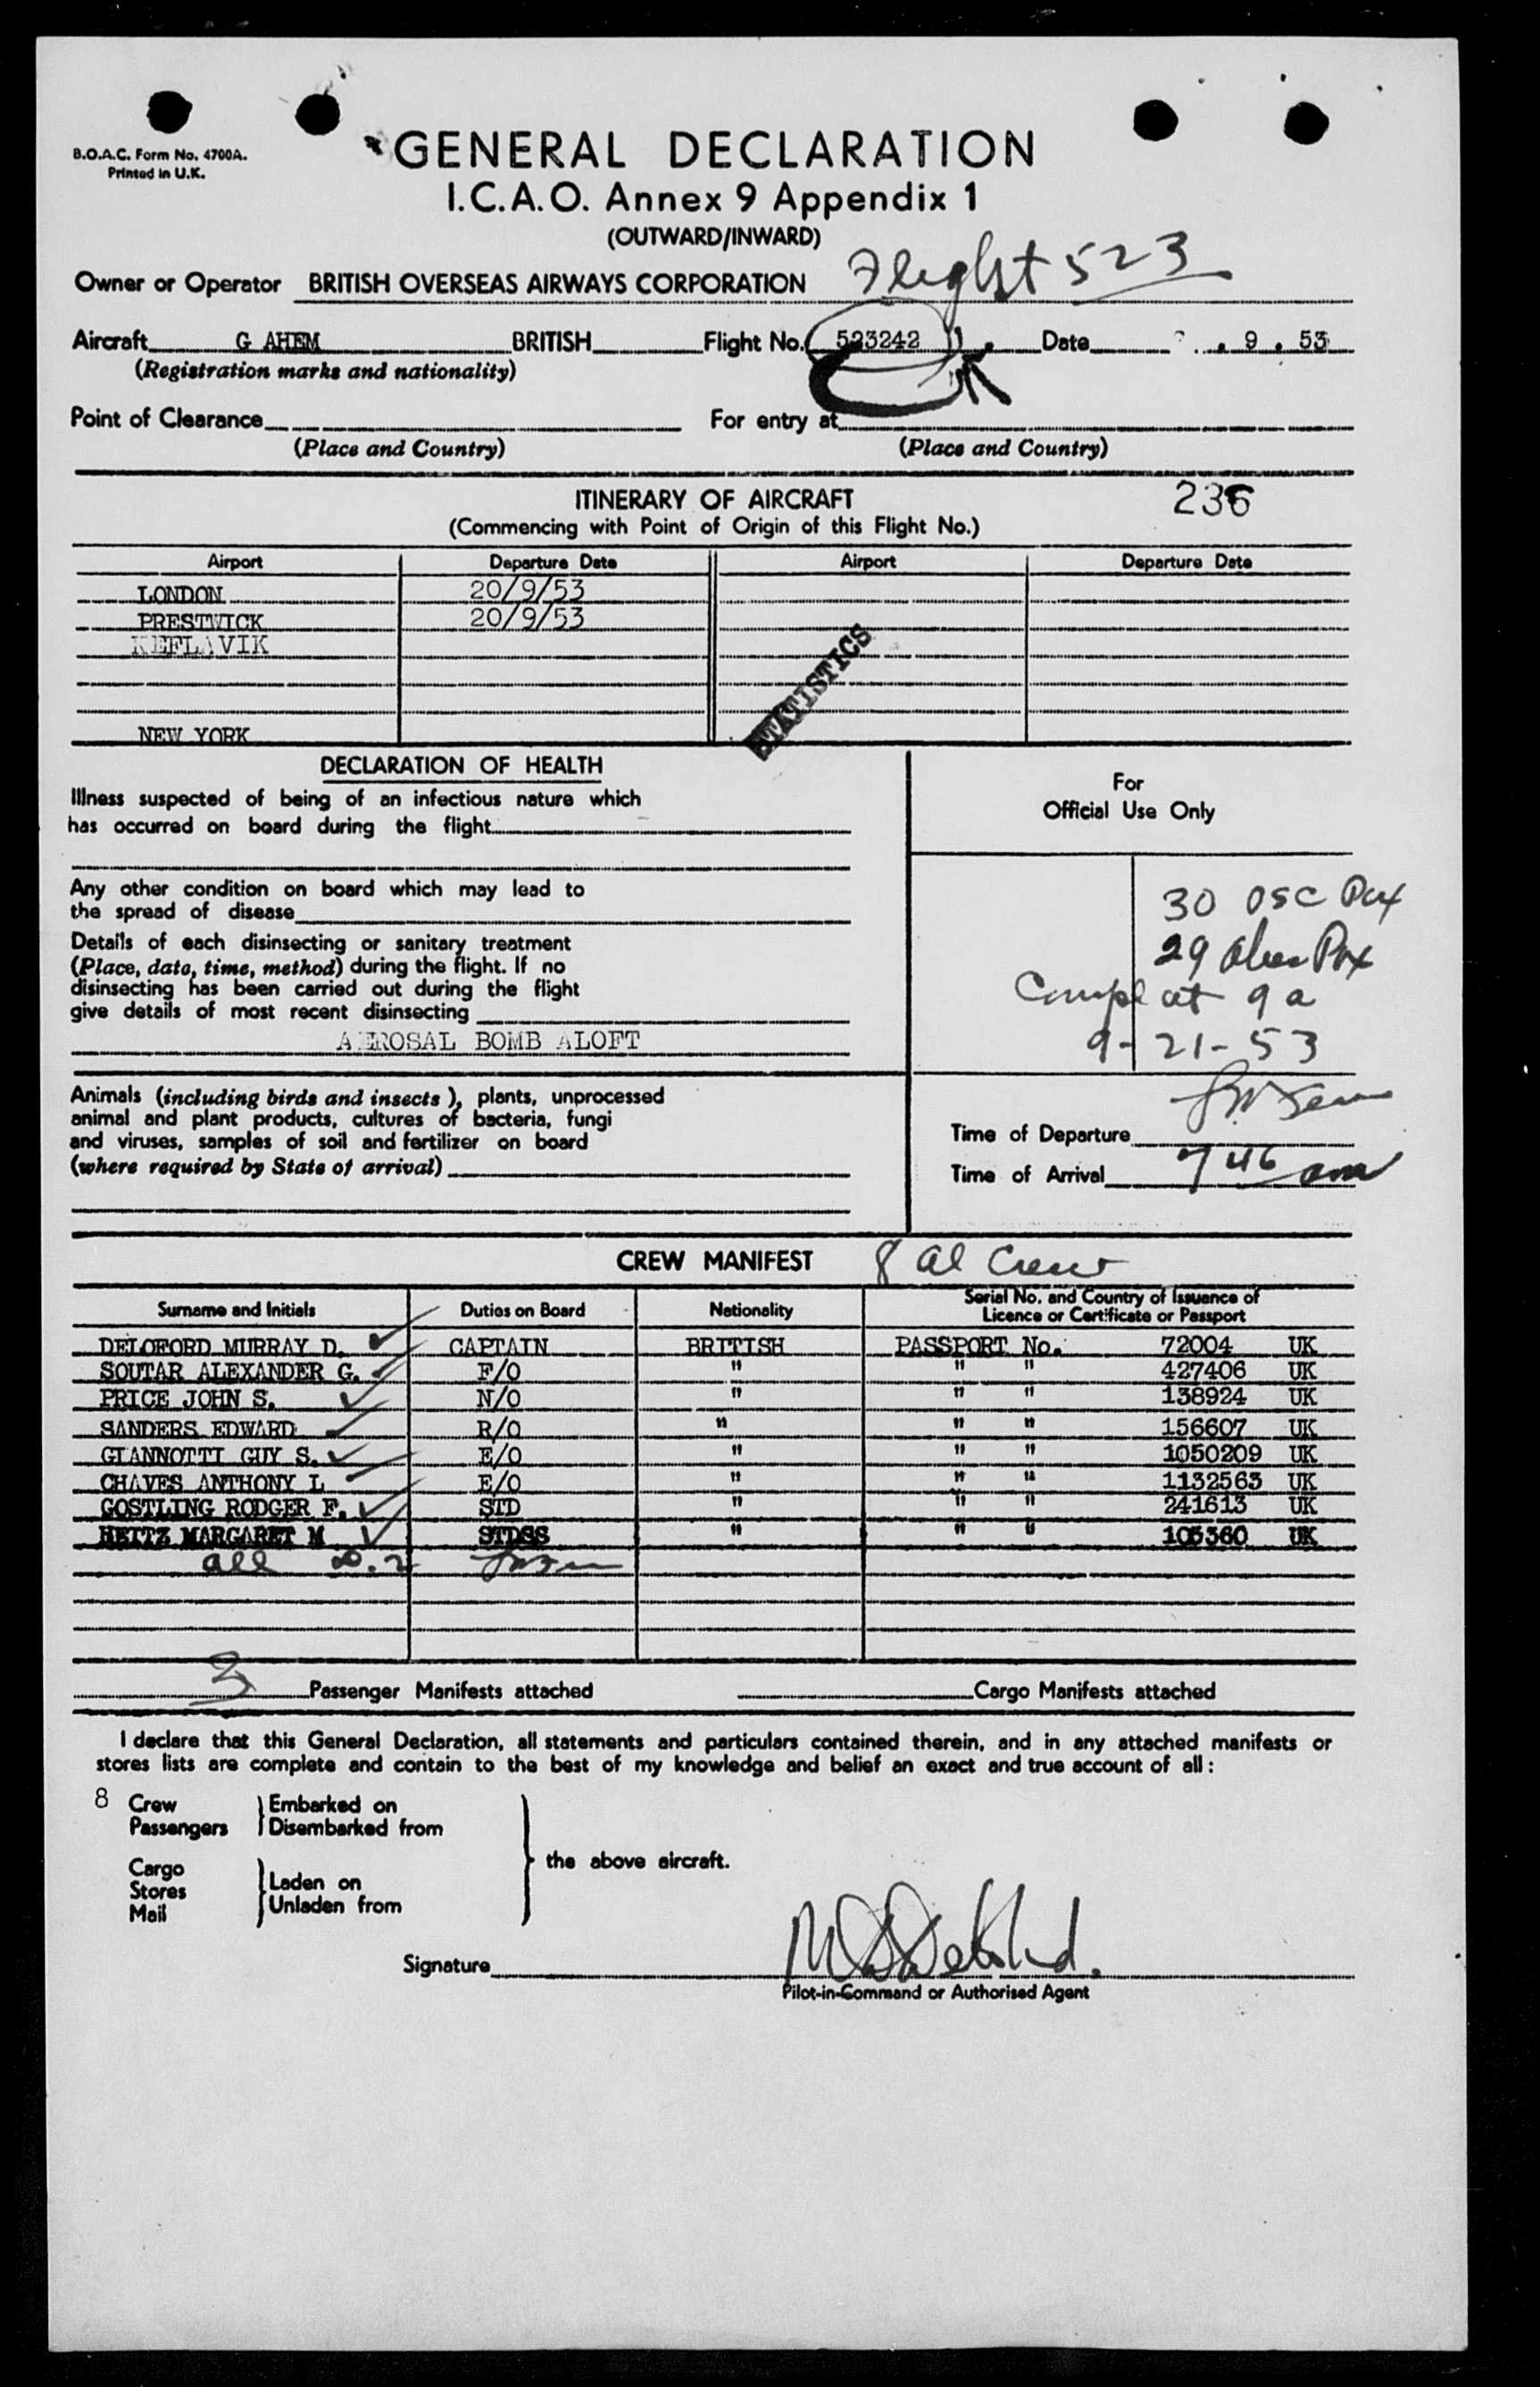 B.O.A.C. Form No. 4700A.
Printed in U.K.
GENERAL DECLARATION
I.C.A.O. Annex 9 Appendix 1
(OUTWARD/INWARD)
Owner or Operator BRITISH OVERSEAS AIRWAYS CORPORATION Flight 523
Aircraft G AHEM BRITISH Flight No. 523242 Date . 9 . 53
(Registration marks and nationality)
Point of Clearance For entry at
(Place and Country) (Place and Country)
ITINERARY OF AIRCRAFT 236
(Commencing with Point of Origin of this Flight No.)
Airport Departure Date Airport Departure Date
LONDON 20/9/53
PRESTWICK 20/9/53
KEFLAVIK
STATISTICS
NEW YORK
DECLARATION OF HEALTH
Illness suspected of being of an infectious nature which
has occurred on board during the flight
Any other condition on board which may lead to
the spread of disease
Details of each disinsecting or sanitary treatment
(Place, date, time, method) during the flight. If no
disinsecting has been carried out during the flight
give details of most recent disinsecting
AEROSAL BOMB ALOFT
Animals (including birds and insects), plants, unprocessed
animal and plant products, cultures of bacteria, fungi
and viruses, samples of soil and fertilizer on board
(where required by State of arrival)
For
Official Use Only
30 OSC Pax
29 alien Pax
Compl at 9 a
9-21-53
Time of Departure
Time of Arrival 7 46 am
CREW MANIFEST 8 al Crew
Surname and Initials Duties on Board Nationality Serial No. and Country of Issuance of
Licence or Certificate or Passport
DELOFORD MURRAY D. CAPTAIN BRITISH PASSPORT No. 72004 UK
SOUTAR ALEXANDER G. F/O " " " 427406 UK
PRICE JOHN S. N/O " " " 138924 UK
SANDERS EDWARD R/O " " " 156607 UK
GIANNOTTI GUY S. E/O " " " 1050209 UK
CHAVES ANTHONY L E/O " " " 1132563 UK
GOSTLING RODGER F. STD " " " 241613 UK
HEITZ MARGARET M STDSS " " " 105360 UK
all
3 Passenger Manifests attached Cargo Manifests attached
I declare that this General Declaration, all statements and particulars contained therein, and in any attached manifests or
stores lists are complete and contain to the best of my knowledge and belief an exact and true account of all :
8 Crew Embarked on
Passengers Disembarked from
the above aircraft.
Cargo
Stores Laden on
Mail Unladen from
Signature
Pilot-in-Command or Authorised Agent